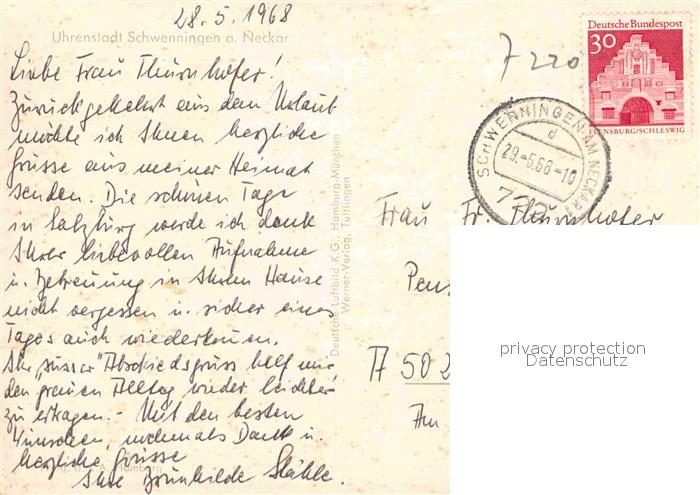 28.5.1968
Uhrenstadt Schwenningen a. Neckar
Liebe Frau Thurnhofer!
Zurückgekehrt aus dem Urlaub
möchte ich Ihnen herzliche
Grüsse aus meiner Heimat
senden. Die schönen Tage
in Salzburg werde ich dank
Ihrer liebevollen Aufnahme
u. Betreuung in Ihrem Hause
nicht vergessen u. sicher eines
Tages auch wiederkommen.
Ihr "süsser" Abschiedsgruss half mir,
den grauen Alltag wieder leichter
zu ertragen. - Mit den besten
Wünschen, nochmals Dank u.
herzliche Grüsse
Ihre Brunhilde Stähle.
Hamburg
Deutsche Luftbild K.G., Hamburg-München
Werner-Verlag, Tuttlingen
7220
Deutsche Bundespost
30
FLENSBURG/SCHLESWIG
SCHWENNINGEN AM NECKAR
d
29.-5.68-10
Frau Fr. Thurnhofer
Pen
A 502
Am
privacy protection
Datenschutz